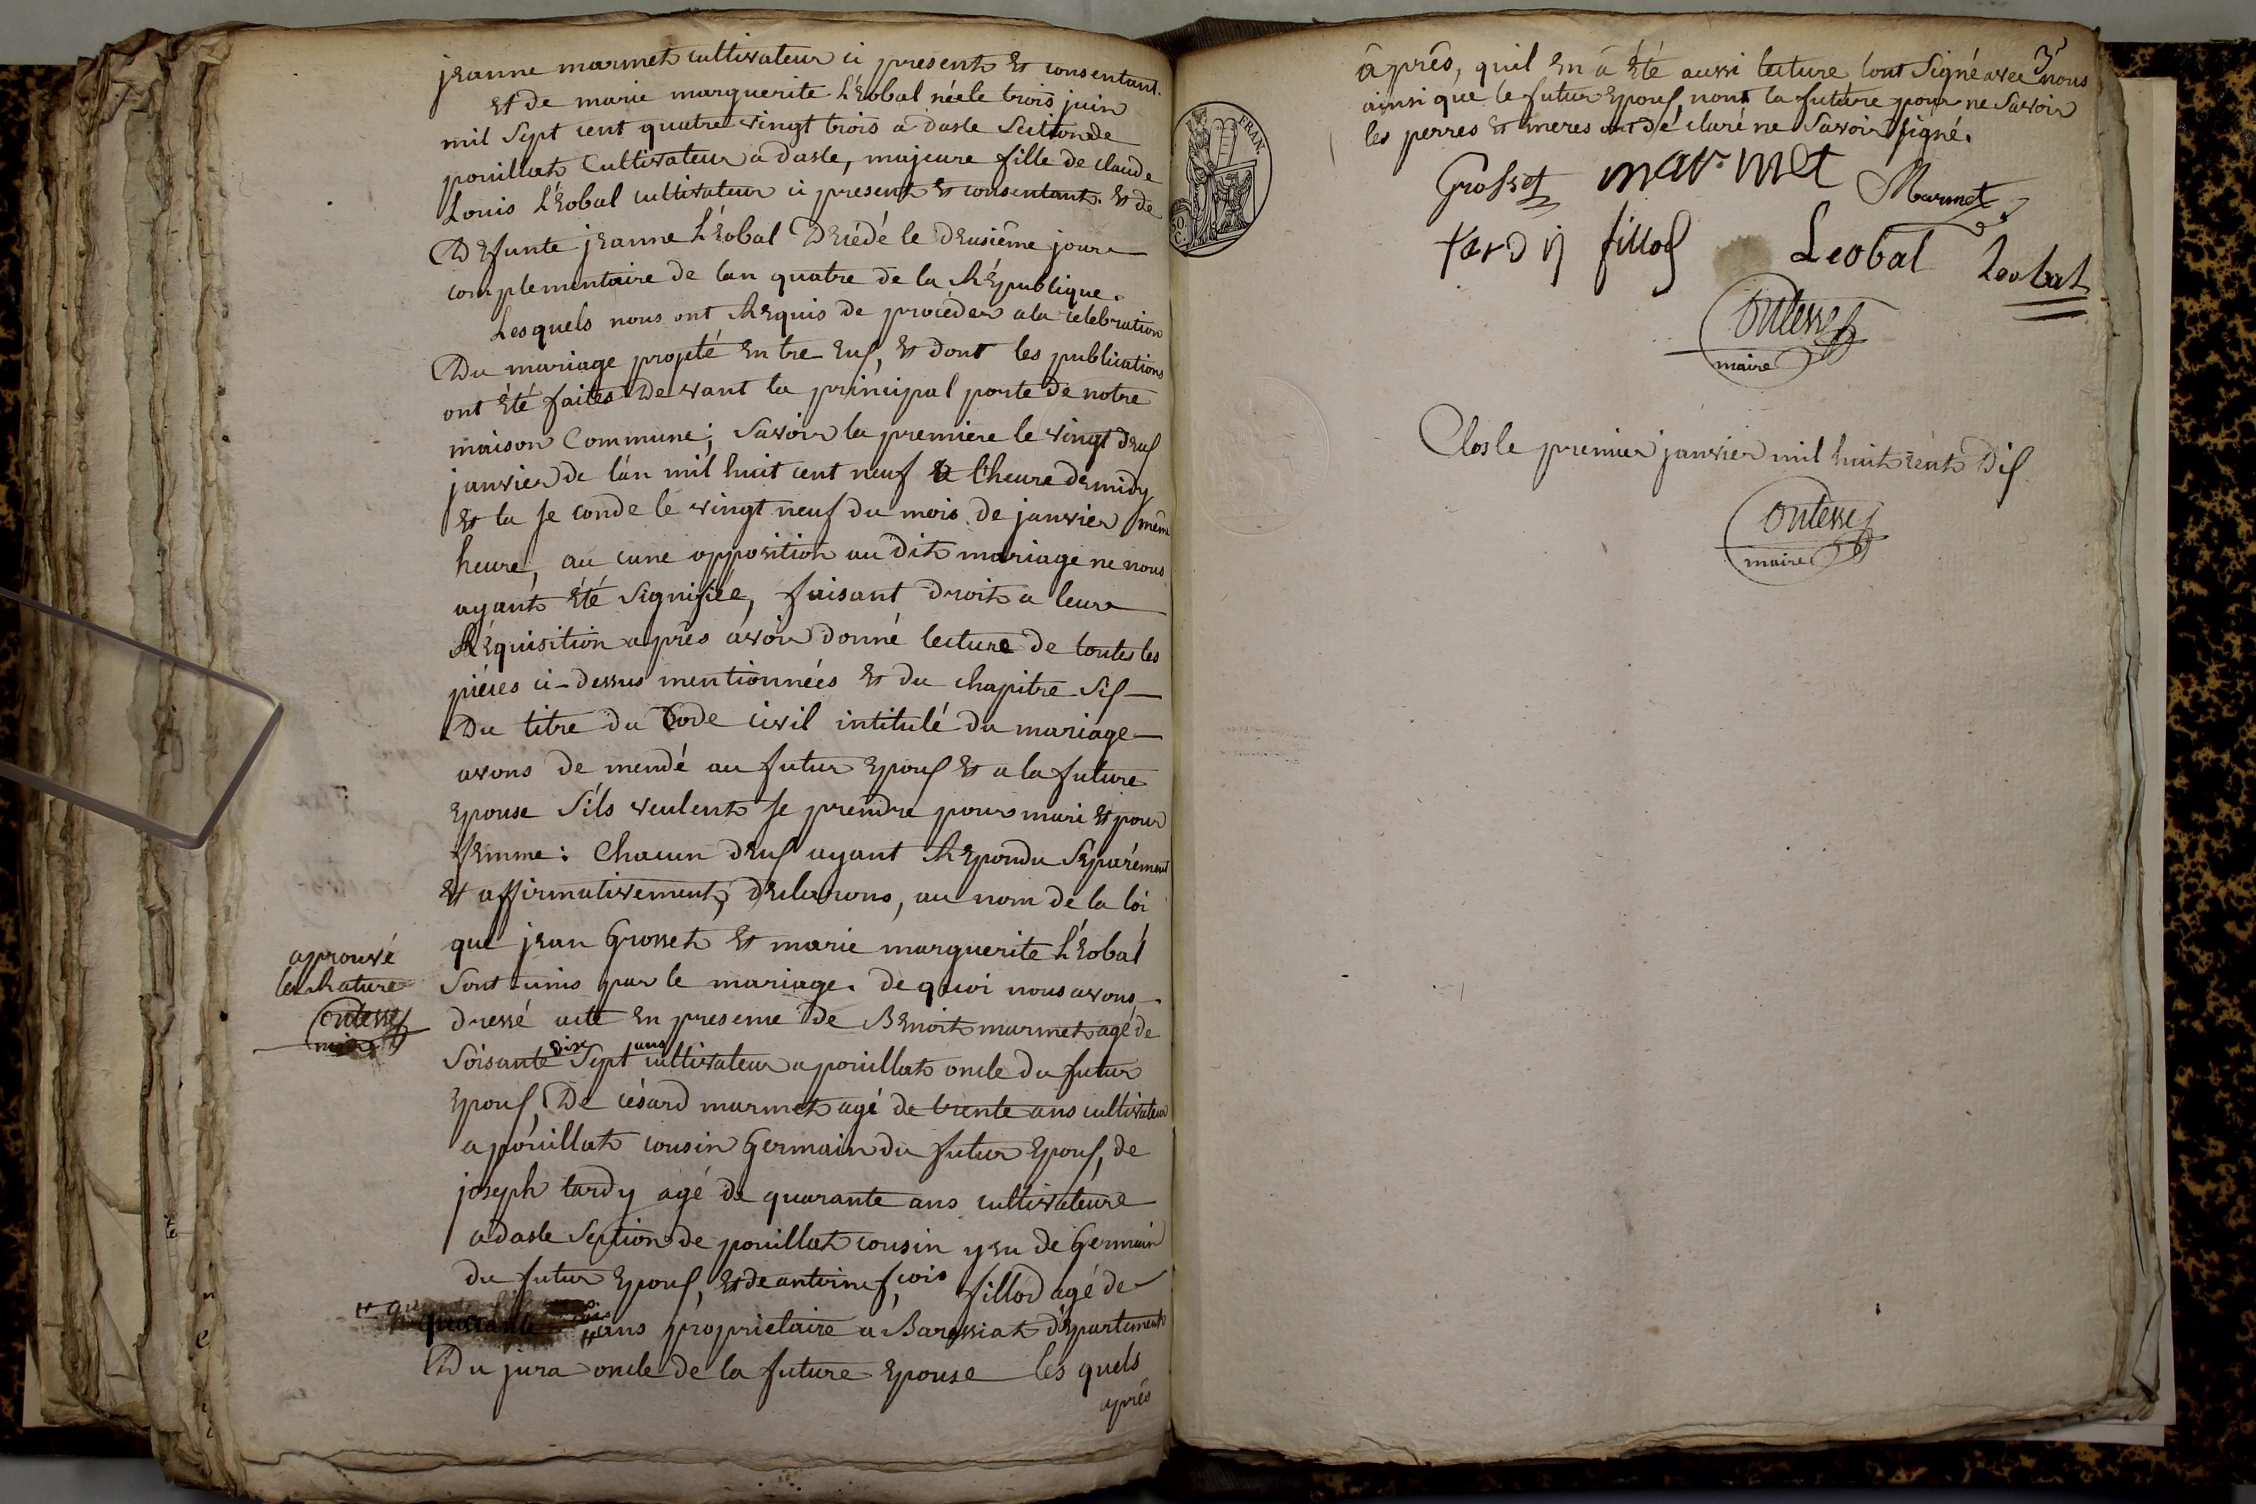 jeanne marmet cultivateur ci present et consentant.
et de marie marguerite Léobal néele trois juin
mil sept cent quatre vingt trois a dasle Sectionde
pouillat Cultivateur a dasle, majeure fille de claude
Louis Léobal cultivateur ci present et consentant. et de
Defunte jeanne Léobal Décédé le deusiême jour
complementaire de lan quatre de la République.
Lesquels nous ont Requis de procéder ala célébration
Du mariage projeté entre eux, et dont les publications
ont été faites devant la principal porte de notre
maison Commune; savoir la premiere le vingt deux
janvier de lan mil huit cent neuf a l'heure demidy
et la seconde le vingt neuf du mois de janvier même
heure, au cune opposition au dit mariage ne nous
ayant été signifiée, faisant droit a leur
Réquisition après avoir donné lecture de toutes les
piéces ci-dessus mentionnées et du chapitre six
Du titre du Code civil intitulé du mariage
avons de mendé au futur epoux et a la future
epouse s'ils veulent se prendre pour mari et pour
femme: Chacun deux ayant Repondu séparément
et affirmativement, declarons, au nom de la loi
que jean Grosset et marie marguerite Léobal
sont unis par le mariage. de quoi nous avons
aprouvé
la Rature
Outesse
maire
dressé acte en presence de Benoit marmet agé de
soisante dix sept ans cultivateur a pouillat oncle du futur
epoux, De césard marmet agé de trente ans cultivateur
a pouillat cousin Germain du futur epoux, de
joseph tardy agé de quarante ans cultivateure
a dasle Section de pouillat cousin yeu de Germain
du futur epoux, et de antoine f,cois fillod agé de
quarante ans proprietaire a Baressiat département
Du jura oncle de la future epouse les quels
après
3
âprês, quil en â été aussi lecture lont signé avec nous
ainsi que le futur epoux, nont la future pour ne savoir
les perres et meres ont dé claré ne savoir signé.
Grosset marmet Marmet
tardy fillod Leobal Leobal
Outesse
maire
FRAN.
Clos le premier janvier mil huit cent dix
Outesse
maire